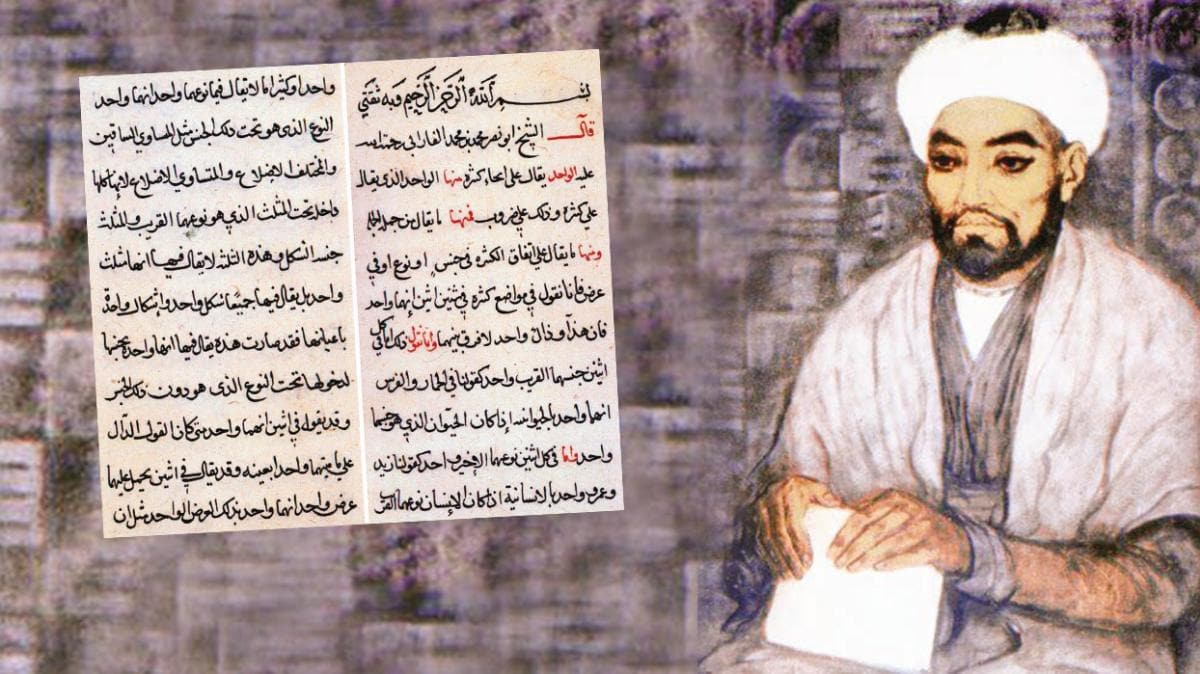 بسم الله الرحمن الرحيم وبه ثقتي
قال الشيخ ابو نصر محمد بن محمد الفارابي رحمة الله
عليه الواحد يقال على انحاء كثيرة منها الواحد الذي يقال
على كثرة وذلك على ضروب فمنها ما يقال من جهة
ومنها ما يقال على اتفاق الكثرة في جنس او نوع او في
عرض فأنا نقول في مواضع كثيرة في شيئين اثنين إنهما واحد
فان هذا وذاك واحد لا فرق بينهما وانا نقول ذلك اما في كل
اثنين جنسهما القريب واحد كقولنا في الحمار والفرس
انهما واحد بالحيوانية إذ كان الحيوان الذي هو جنسهما
واحد واما في كل اثنين نوعهما الاخير واحد كقولنا زيد
وعمرو واحد بالانسانية اذ كان الإنسان نوعهما القريب
واحدا وكثيرا ما لا يقال فيما نوعهما واحد انهما واحد
النوع الذي هو تحت ذلك الجنس مثل المتساوي الساقين
والمختلف الاضلاع والمتساوي الاضلاع لانها كلها
داخلة تحت المثلث الذي هو نوعها القريب والمثلث
جنسه الشكل وهذه الثلثة لا يقال فيها انها مثلث
واحد بل يقال فيها جميعا شكل واحد واشكال واحدة
باعيانها فقد صارت هذه يقال فيها انها واحدة بجنسها
لدخولها تحت النوع الذي هو دون ذلك الجنس
وقد يقول في اثنين انهما واحد متى كان القول الدال
على ماهيتهما واحدا بعينه وقد يقال في اثنين يحمل عليهما
عرض واحد انهما واحد بذلك العرض الواحد مثل ان